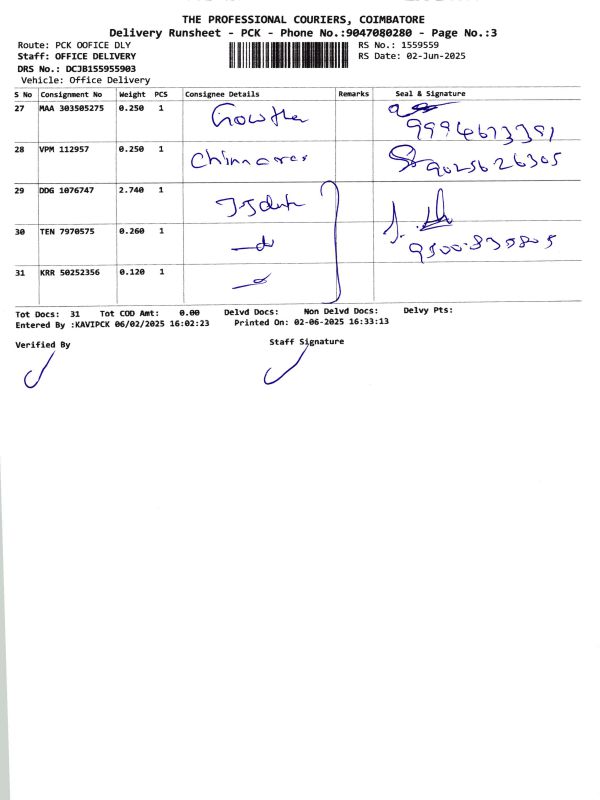 THE PROFESSIONAL COURIERS, COIMBATORE
Delivery Runsheet - PCK - Phone No.:9047080280 - Page No.:3
Route: PCK OOFICE DLY RS No.: 1559559
Staff: OFFICE DELIVERY RS Date: 02-Jun-2025
DRS No.: DCJB155955903
Vehicle: Office Delivery
S No Consignment No Weight PCS Consignee Details Remarks Seal & Signature
27 MAA 303505275 0.250 1 Gowtha
9994673391
28 VPM 112957 0.250 1 9025626305
29 DDG 1076747 2.740 1
30 TEN 7970575 0.260 1
31 KRR 50252356 0.120 1
Tot Docs: 31 Tot COD Amt: 0.00 Delvd Docs: Non Delvd Docs: Delvy Pts:
Entered By :KAVIPCK 06/02/2025 16:02:23 Printed On: 02-06-2025 16:33:13
Verified By Staff Signature